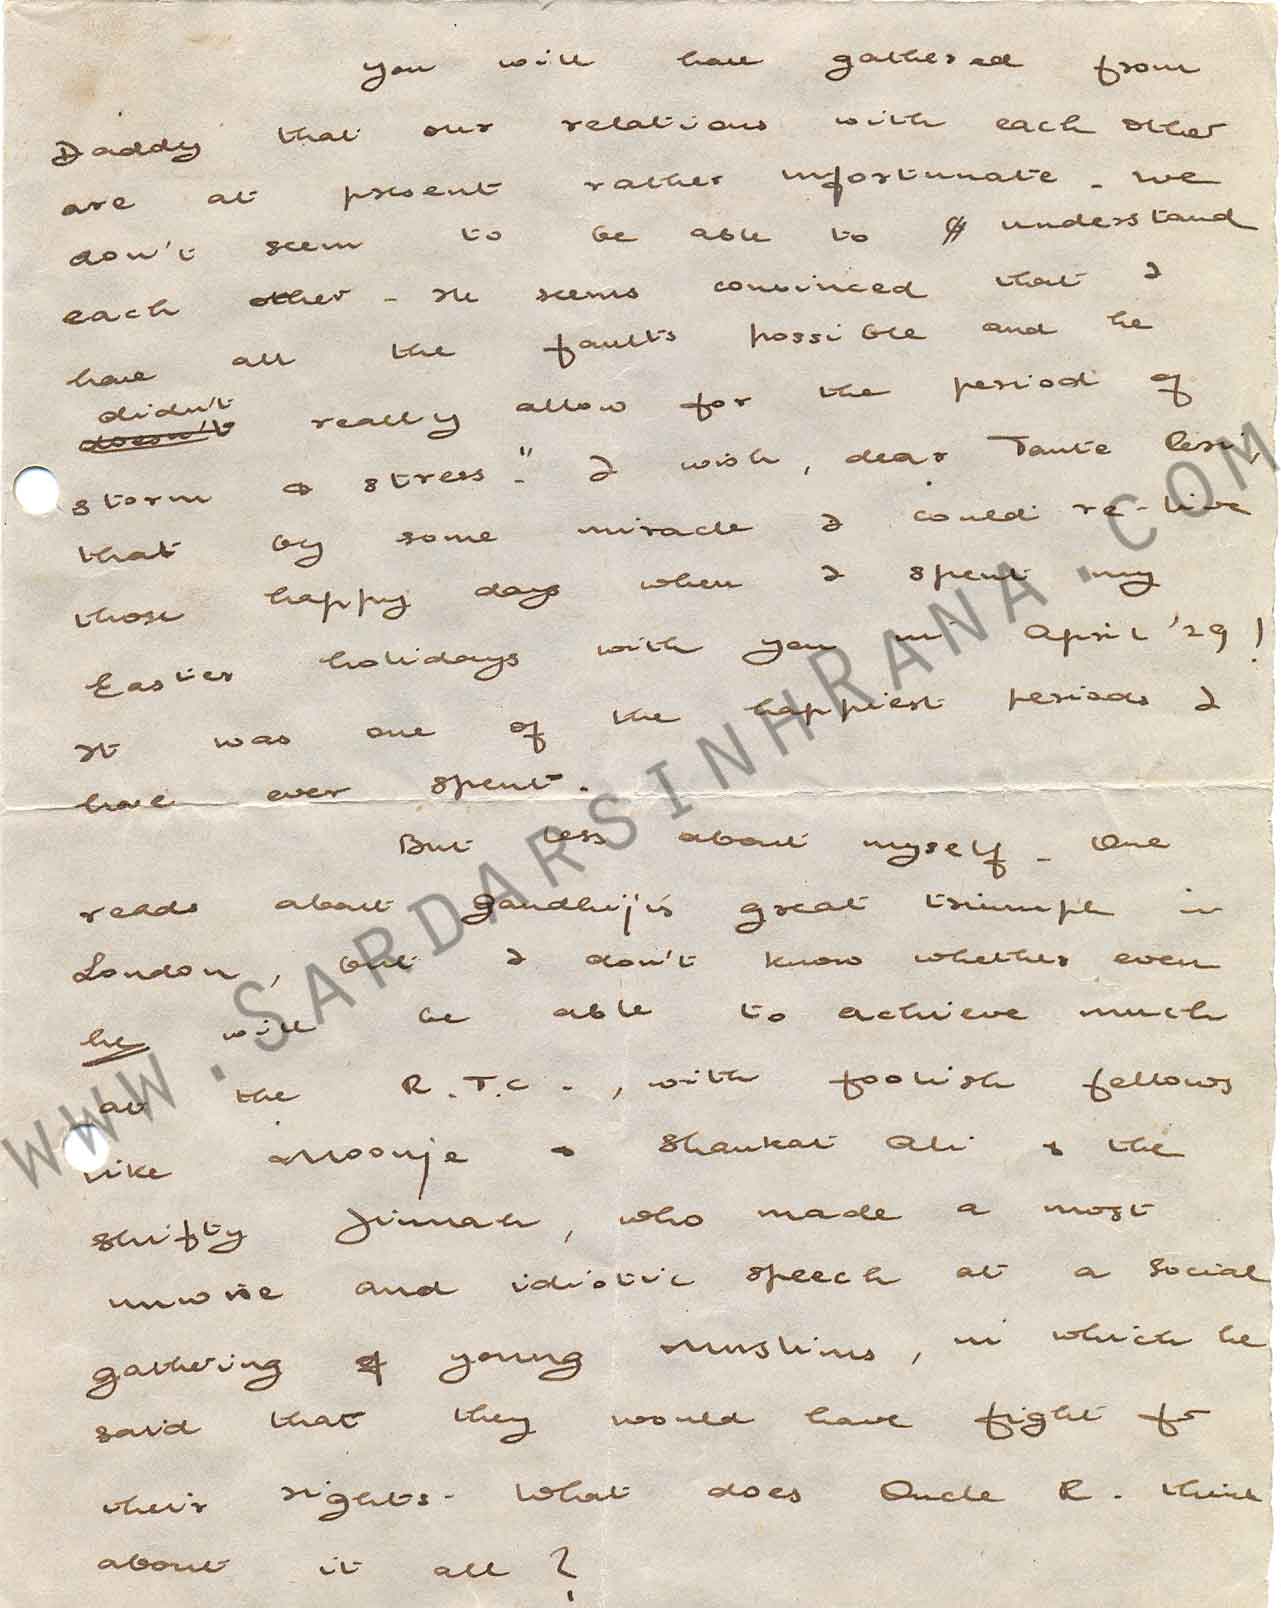 you will have gathered from
Daddy that our relations with each other
are at present rather unfortunate. We
don't seem to be able to understand
each other. He seems convinced that I
have all the faults possible and he
didn't
doesn't really allow for the period of
storm & stress". I wish, dear Tante
that by some miracle I could re-live
those happy days when I spent my
Easter holidays with you in April '29!
It was one of the happiest periods I
have ever spent.
But less about myself. One
reads about Gandhiji's great triumph in
London, but I don't know whether even
he will be able to achieve much
at the R.T.C., with foolish fellows
like Moonje & Shaukat Ali & the
shifty Jinnah, who made a most
unwise and idiotic speech at a social
gathering of young Muslims, in which he
said that they would have fight for
their rights. What does Oncle R. think
about it all?
WWW.SARDARSINHRANA.COM